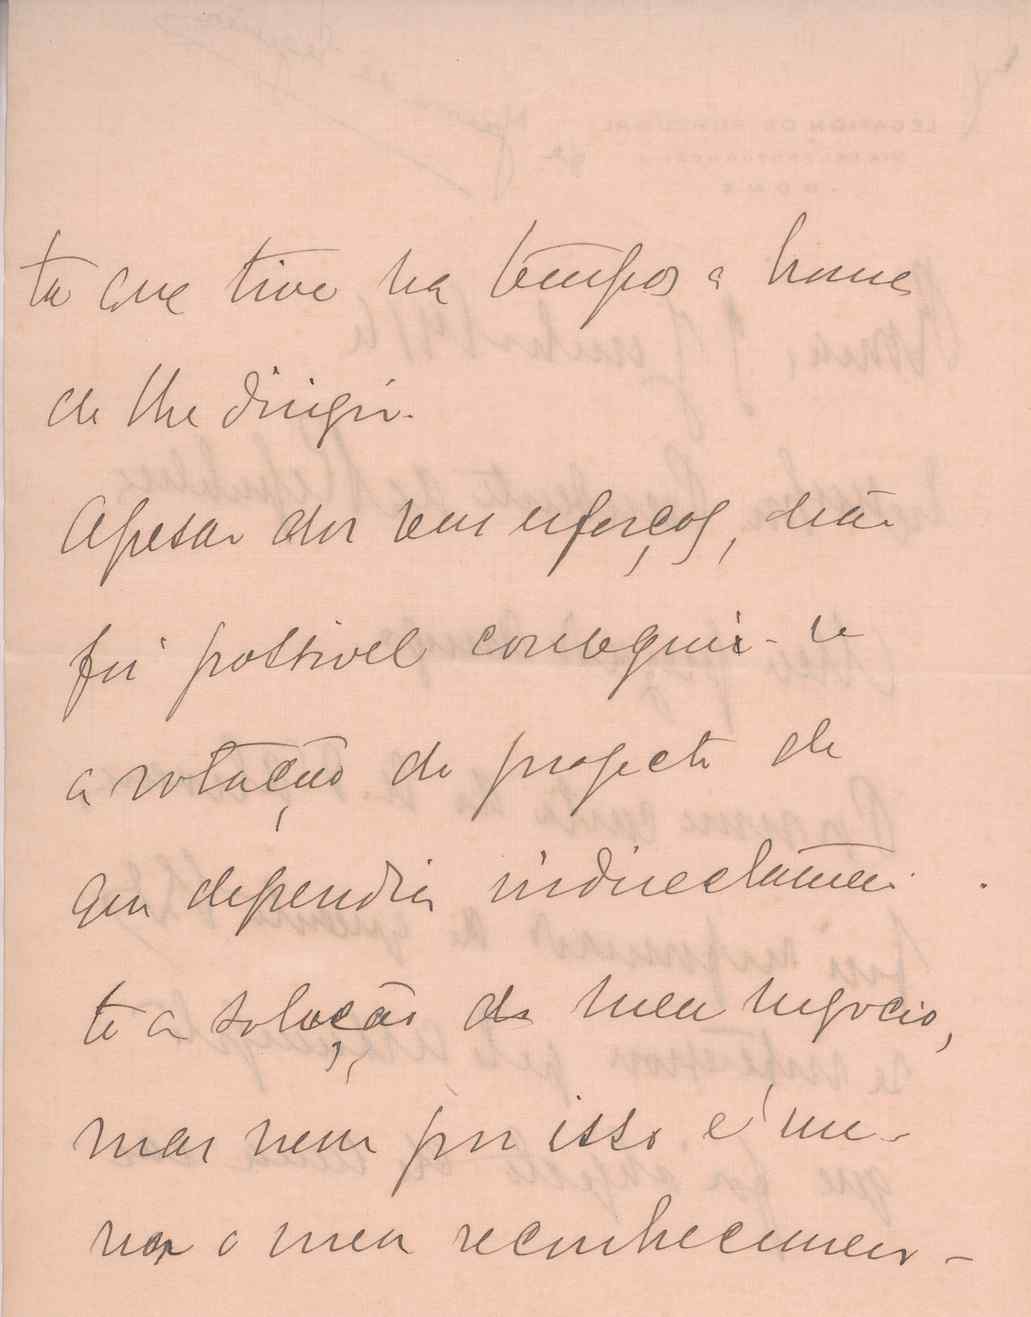 ta que tive ha tempos a honra
de lhe dirigir.
Apesar dos seus esforços, não
foi possivel conseguir-se
a votação do projecto de
que dependia indirectamen-
te a solução do meu negocio,
mas nem por isso é me-
nor o meu reconhecimen-